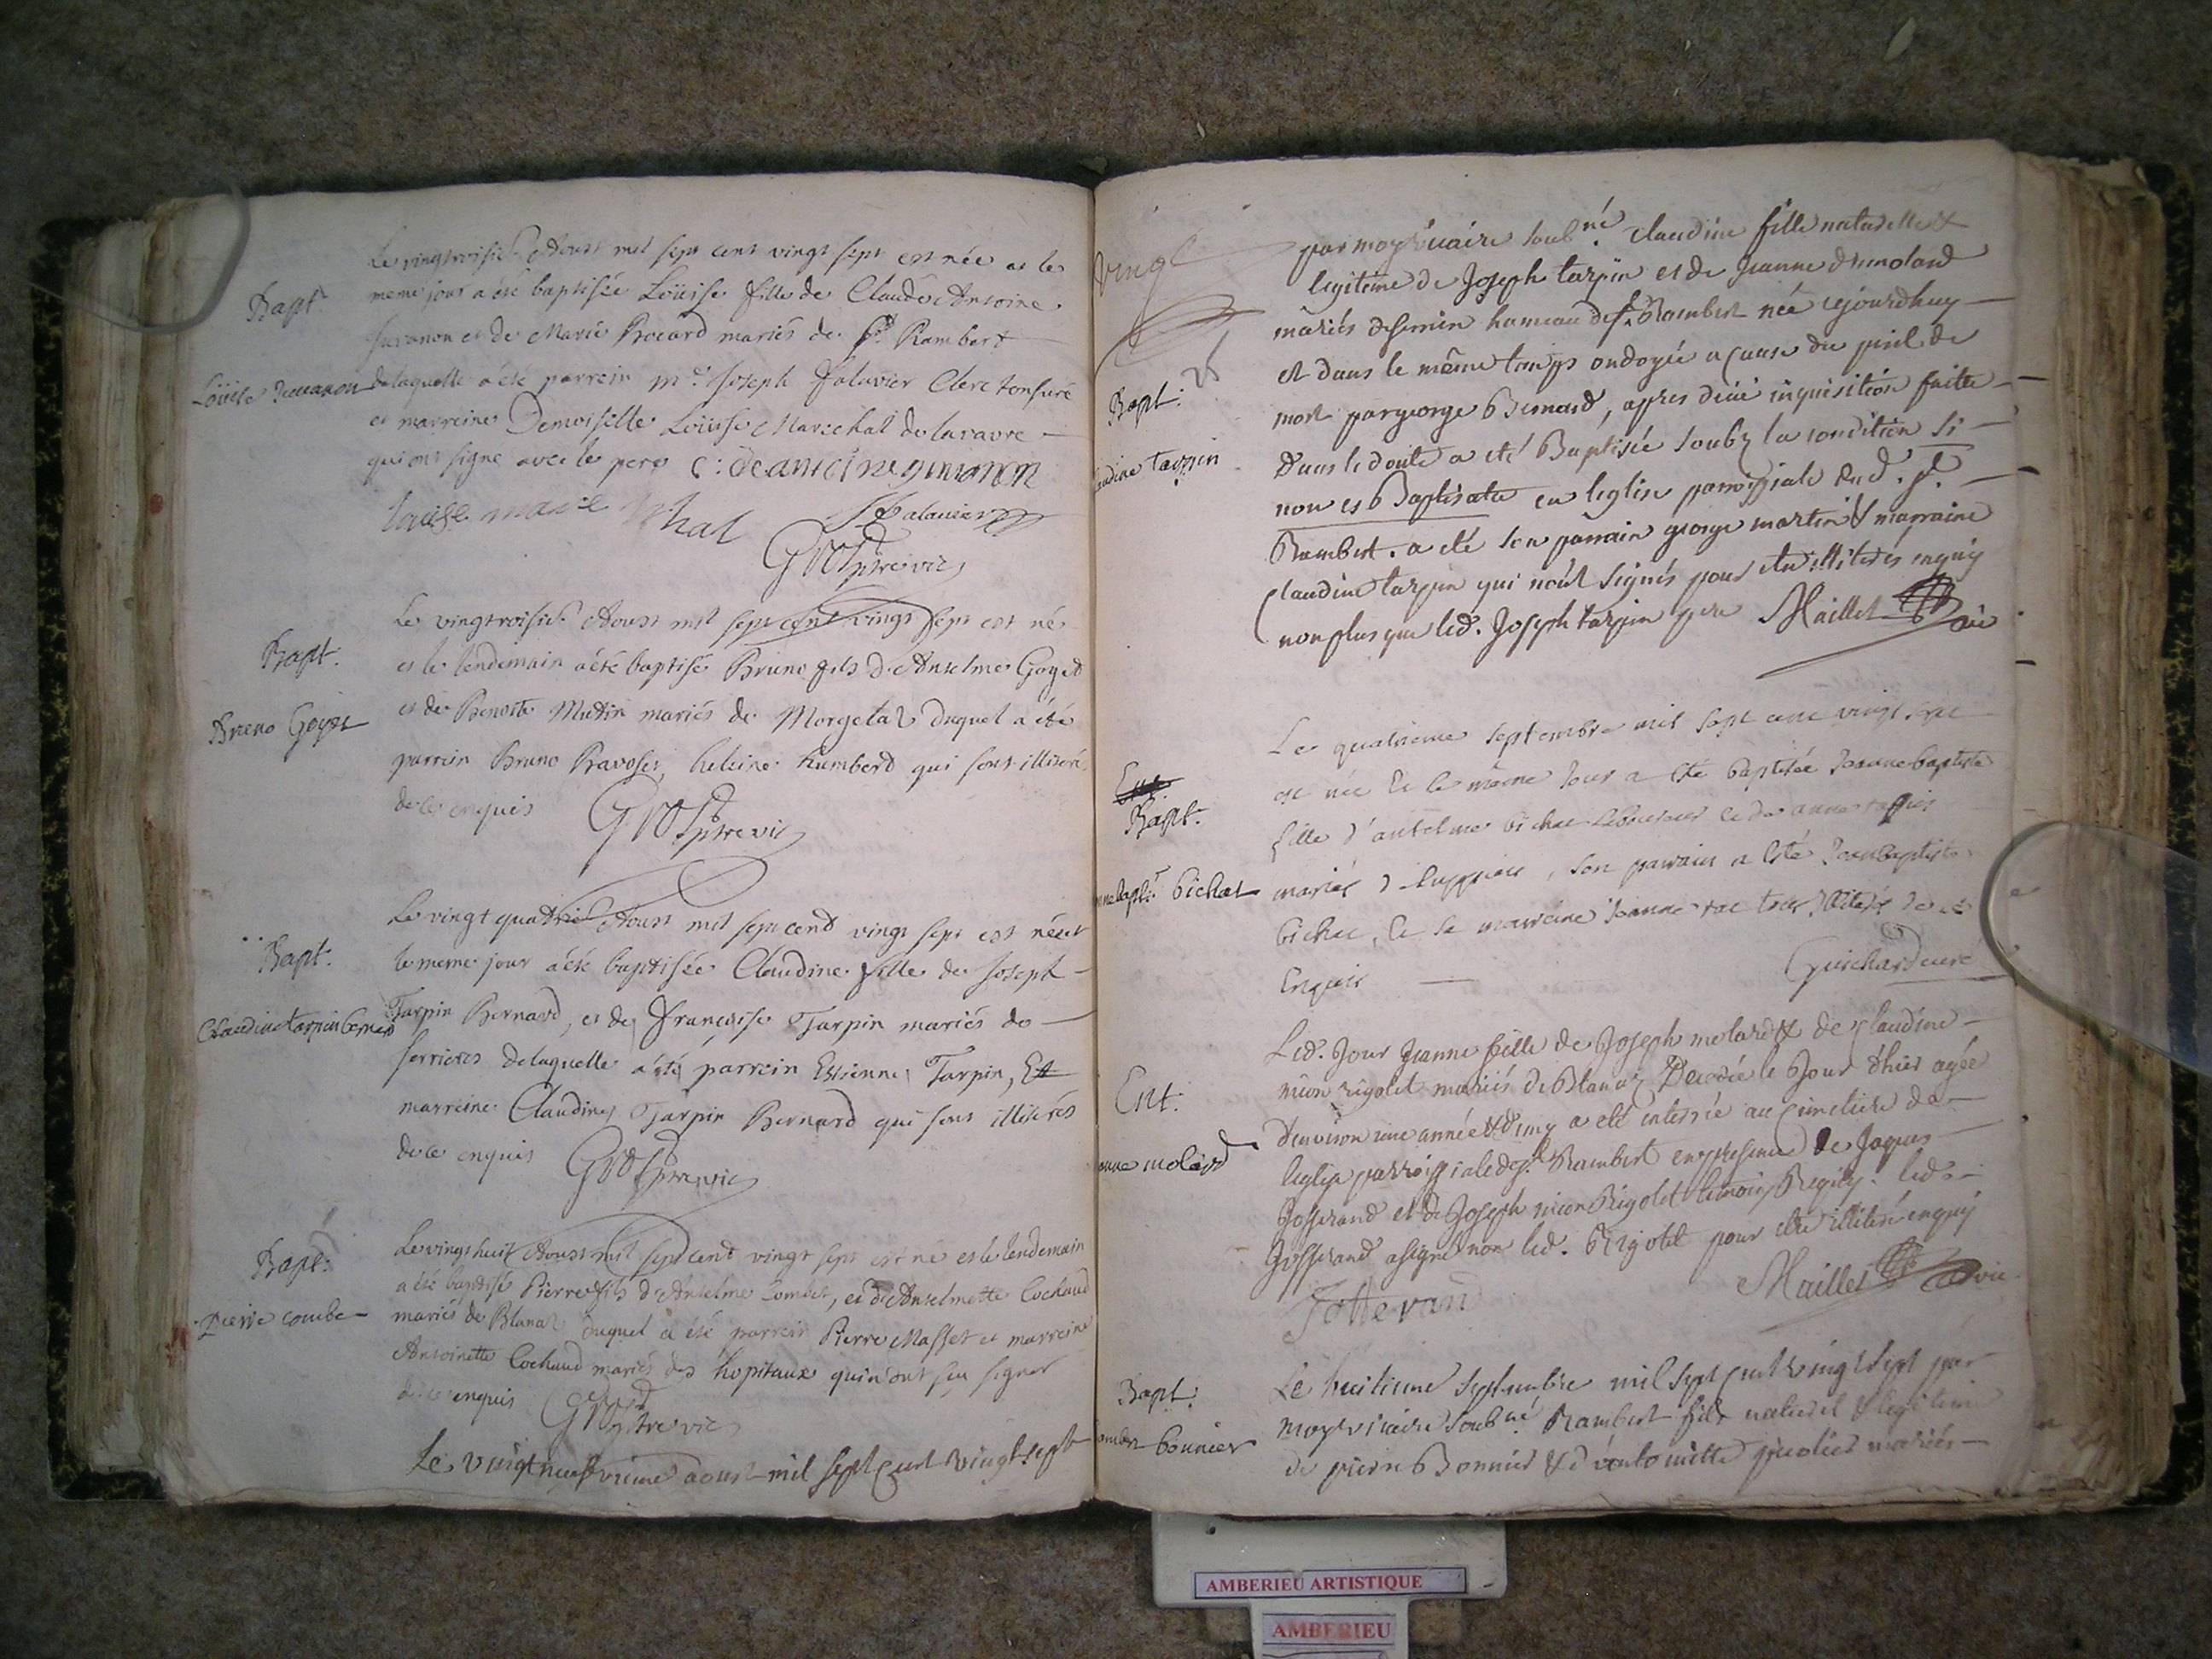 Bapt.
Loüise Juvanon
Le vingtroisie. Aoust mil sept cent vingt sept est née et le
meme jour a été baptisée Loüise fille de Claude Antoine
Juvanon et de Marie Brocard mariés de St. Rambert
de laquelle a été parrein Mre. Joseph Falavier Clerc tonsuré
et marreine Demoiselle Loüise Marechal de la
qui ont signé avec le pere C: de antoine juvanon
louise mare chal Falavier
Gros ptre vic
Bapt.
Bruno Goyet
Le vingtroisie. Aoust mil sept cent vingt sept est né
et le lendemain a été baptisé Bruno fils d'Anselme Goyet
et de Benoite Mutin mariés de Morgelaz duquel a été
parrein Bruno Ravoset, heleine humberd qui sont illiterés
de ce enquis Gros ptre vic
Bapt.
Claudine tarpin bernard
Le vingt quatrie. Aoust mil sept cent vingt sept est née et
le meme jour a été baptisée Claudine fille de Joseph
Tarpin Bernard, et de francoise Tarpin mariés de
serrieres de laquelle a été parrein Estienne Tarpin, Et
marreine Claudine Tarpin Bernard qui sont illiterés
de ce enquis Gros ptre vic
Bapt.
pierre combe
Le vingt huit Aoust mil sept cent vingt sept est né et le lendemain
a été baptisé Pierre fils d'Anselme Combet, et d'Anselmette Cochaud
mariés de Blanaz duquel a été parrein Pierre Masset et marreine
Antoinette Cochaud mariés des hopitaux qui n'ont sçu signer
de ce enquis Gros ptre vic
Le vingt neufvieme aoust mil sept cent vingt sept
vingt
Bapt.
claudine tarpin
par moy vicaire soubné. Claudine fille naturelle et
legitime de Joseph tarpin et de Jeanne dumolard
mariés de hameau de St. Rambert née cejourdhuy
et dans le même temps ondoyée a cause du peril de
mort par george Bernard, apres deüe inquisition faitte
dans le doute a eté Baptisée soubz la condition si
non es Baptisata en leglise parroissiale dud. St.
Rambert. a eté son parrain george martin et marraine
Claudine tarpin qui n'ont signés pour etre illiterés enquis
non plus que led. Joseph tarpin pere Maillet vic
Ent.
Bapt.
Bichat
Le quatrieme septembre mil sept cent vingt sept
est née et le même jour a esté baptisée Jeanne baptiste
fille d'antelme bichat et de anne
mariés, son parrain a esté Jean baptiste
bichat, et sa marreine Jeanne tous illiterés de ce
Enquis Guichard curé
Ent.
Jeanne molard
Led. Jour Jeanne fille de Joseph molard et de claudine
nicon rigolet mariés de Blanaz Decedée le Jour d'hier agée
d'environ une année et demy a eté enterrée au cimetiere de
leglise parroissiale de St. Rambert en presence de Jaques
Josserand et de Joseph nicon Rigolet temoins Requis. led.
Josserand a signé non led. Rigolet pour etre illiteré enquis
Josseran Maillet vic
Bapt.
Rambert bonnier
Le huitieme septembre mil sept cent vingt sept par
moy vicaire soubné. Rambert fils naturel et legitime
de pierre Bonnier et d'antoinette mariés
AMBERIEU ARTISTIQUE
AMBERIEU